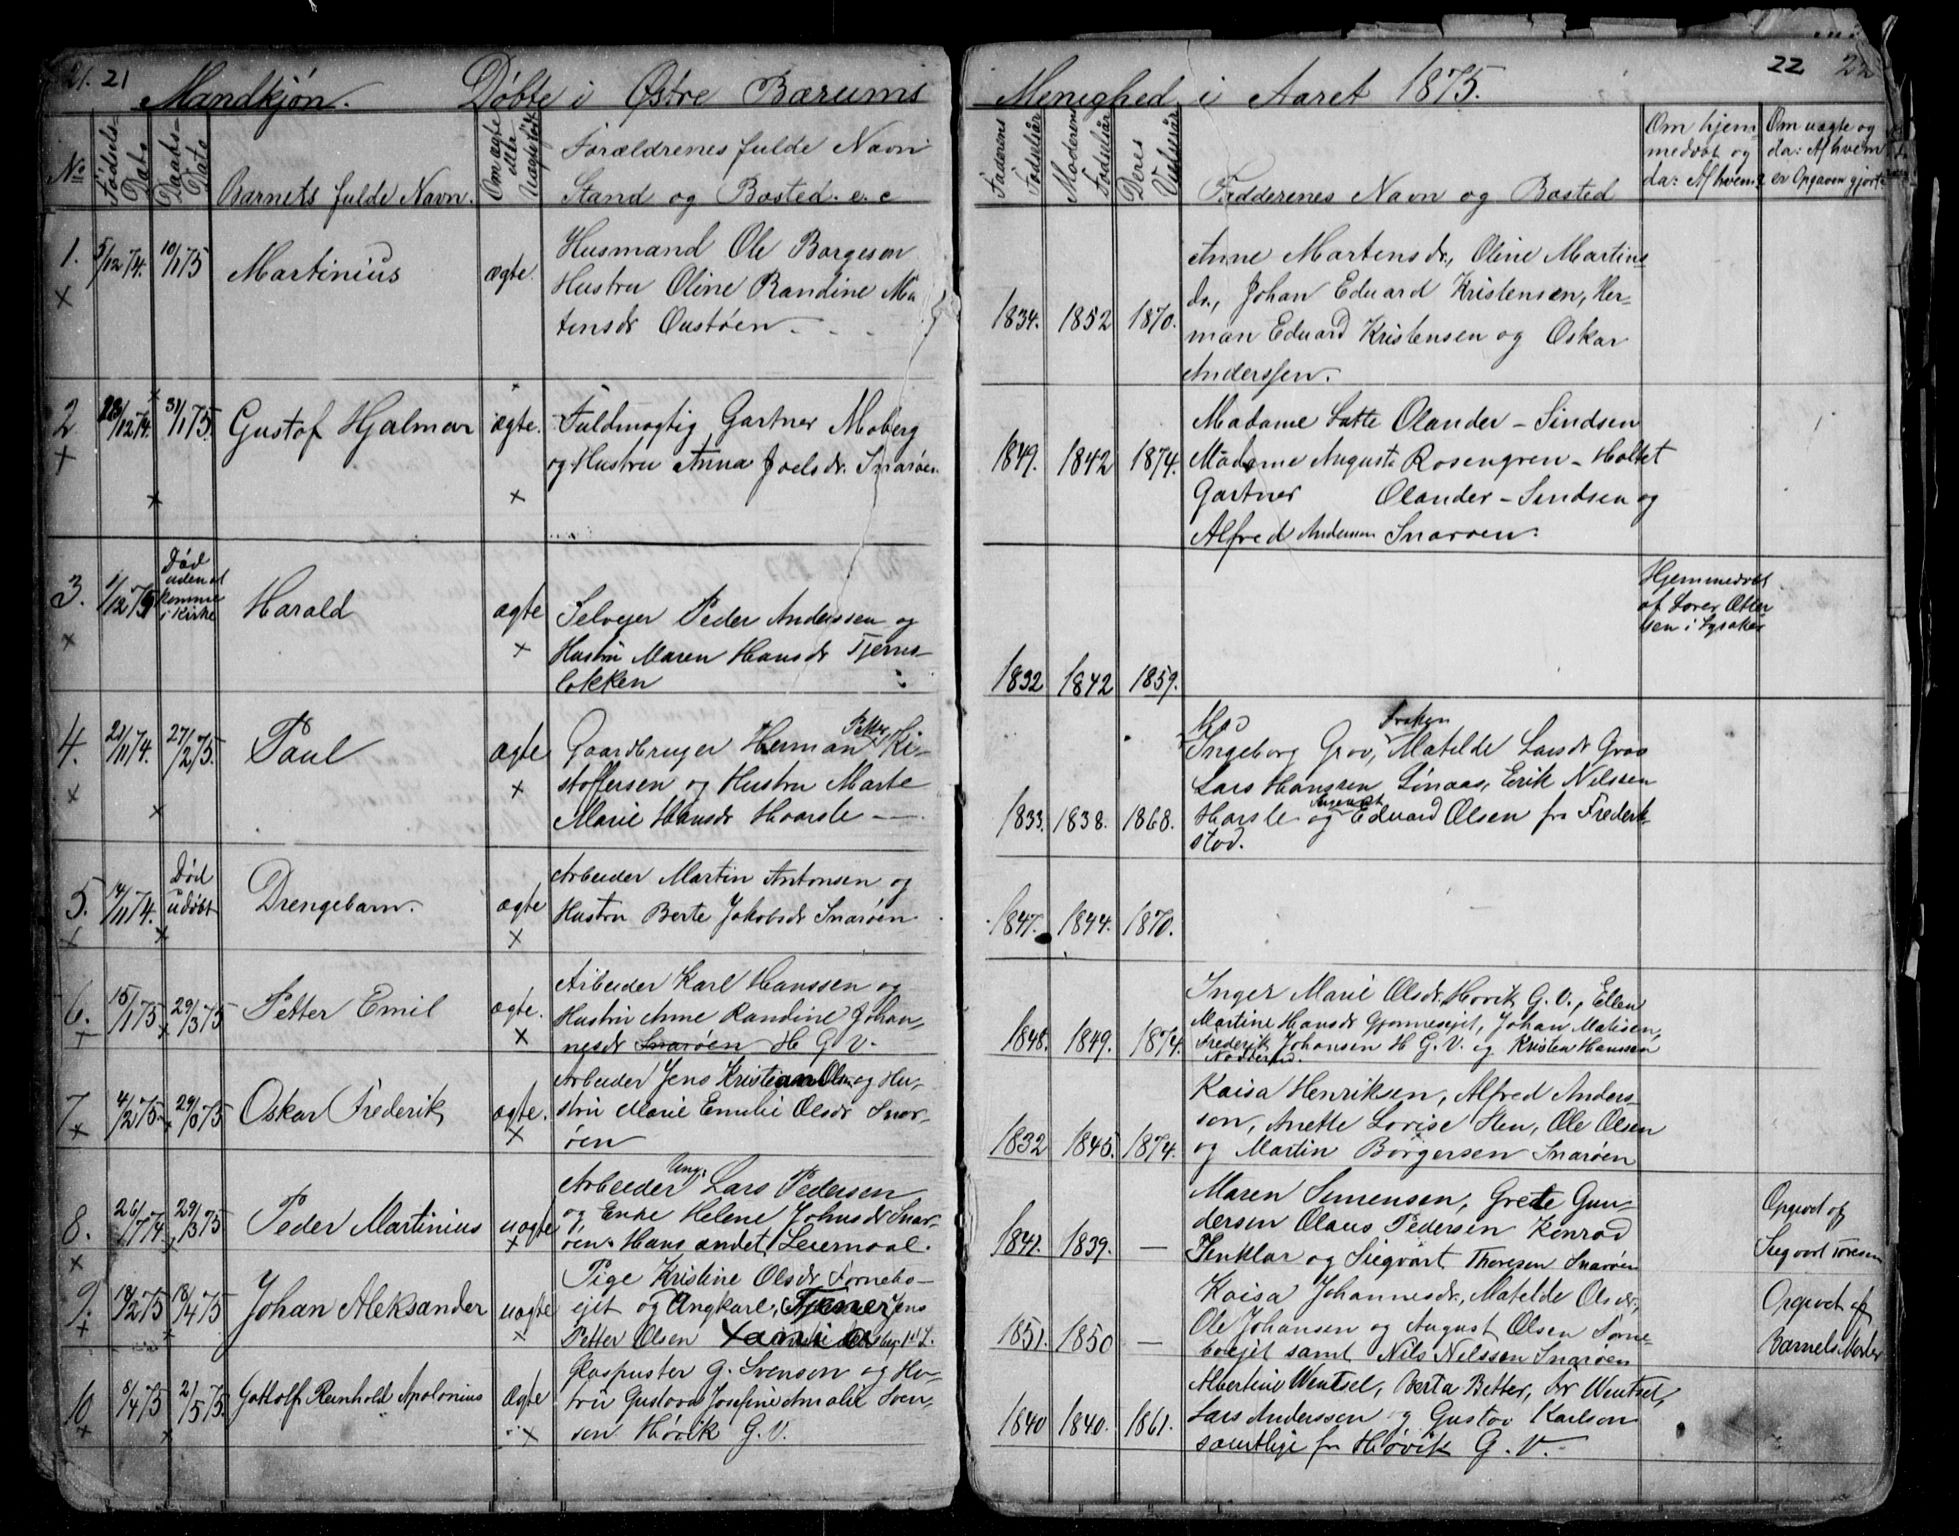 21. 21
Mandkjøn. Døbte i Østre Bærums
Menighed i Aaret 1875.
22 22
No
Fødsels-
Dato
Daabs-
Dato
Barnets fulde Navn.
Om ægte
eller
Uægte født
Forældrenes fulde Navn
Stand og Bosted. e. c
Faderens
Fødselsår
Moderens
Fødselsår
Deres
Vielsesår
Fadderenes Navn og Bosted
Om hjem
medøbt og
da: Af hvem?
Om uægte og
da: Af hvem
er Opgaven gjort
1. 5/12 74. 10/1 75 Martinius ægte.
Husmand Ole Borgeson
Hustru Oline Randine Ma
tensdr Oustøen
1834. 1852 1870.
Anne Martensdr., Oline Martins
dr., Johan Eduard Kristensen, Her-
man Eduard Kristensen og Oskar
Anderssen.
2 28/12 74. 31/1 75. Gustof Hjalmar ægte.
Fuldmægtig Gartner Moberg
og Hustru Anna Joelsdr. Snarøen
1849. 1842 1874.
Madame Lotte Olander - Sindsen
Madame Augusta Rosengren - Holtet
Gartner Olander - Sindsen og
Alfred Andersen Snarøen.
3. 1/12 75 Død
uden at
komme
i Kirke
Harald ægte
Selvejer Peder Anderssen og
Hustru Maren Hansdr Tjerns-
løkken
1832 1842 1859.
Hjemmedøbt
af Lærer Otter
sen i Lysaker
4. 21/11 74. 27/2 75. Paul ægte
Gaardbruger Herman Petter Kri-
stoffersen og Hustru Marte
Marie Hansdr Haarsle
1833. 1838. 1868.
Ingeborg Grav, Frøken Matilde Larsdr Grav
Lars Hanssen Sønaas, Erik Nilssen
Harsle og Agent Eduard Olsen fra Fredrik-
stad.
5. 14/11 74. Død
udøbt
Drengebarn. ægte
Arbeider Martin Antonsen og
Hustru Berte Jakobsdr Snarøen
1847. 1844. 1870.
6. 15/1 75 29/3 75 Petter Emil ægte.
Arbeider Karl Hanssen og
Hustru Anne Randine Johan-
nesdr Snarøen H G V.
1848. 1849. 1874.
Inger Marie Olsdr. Høvik G. V., Ellen
Martine Hansdr Gjønnesejet, Johan Matisen,
Frederik Johansen H G. V. og Kristen Hanssen
Nadderud.
7. 4/2 75. 29/3 75 Oskar Frederik ægte.
Arbeider Jens Kristian Olsen og Hu-
stru Marie Emilie Olsdr Snar-
øen
1832 1845. 1874.
Kaisa Henriksen, Alfred Anders-
son, Anette Lovise Sten, Ole Olsen
og Martin Børgersen Snarøen
8. 26/7 74 29/3 75 Peder Martinius uægte
Arbeider Ung. Lars Pedersen
og Enke Helene Johnsdr Snar-
øen. Hans andet Leiermaal.
1841. 1839. —
Maren Simensen, Grete Gun-
dersen Olaus Pedersen Konrad
Senklar og Siegvart Thoresen Snarøen
Opgivet af
Siegvart Toresen
9. 18/2 75 18/4 75. Johan Aleksander uægte
Pige Kristine Olsdr Fornebo-
ejet og Ungkarl, Tjener Jens
Petter Olsen
1851. 1850 —
Kaisa Johannesdr., Matilde Olsdr.,
Ole Johansen og August Olsen Forne-
boejet samt Nils Nilssen Snarøen
Opgivet af
Barnets Moder
10. 8/4 75 2/5 75. Gottolf Reinhold Apolonius ægte
Glaspuster G. Svenson og Hu-
tru Gustava Josefine Amalie Sven,
son. Høvik G. V.
1840 1840. 1861.
Albertine Wentsel, Berta Better, br Wentsel,
Lars Anderssen og Gustav Karlson
samtlige fra Høvik G. V.